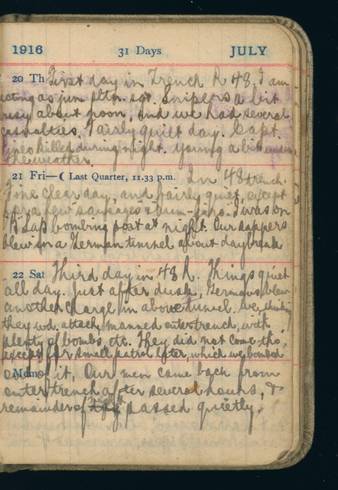 1916 31 Days JULY
20 Th First day in Trench R 48. I am
acting as jun pltn. sgt. Snipers a bit
busy about noon, and we had several
casualties. Fairly quiet day. Capt.
killed during night. Young a bit
the weather.
21 Fri—☾ Last Quarter, 11.33 p.m. In 48 trench.
Fine clear day, and fairly quiet, except
for a few sausages & rum-jars. I was on
R Sap bombing post at night. Our sappers
blew in a German tunnel about daybreak
22 Sat Third day in 48 R. Things quiet
all day. Just after dusk, Germans blew
another charge in above tunnel. We, thinking
they wd. attack, manned outer trench, with
plenty of bombs, etc. They did not come tho',
except for small patrol after, which we bombed
Memo out of it. Our men came back from
outer trench after several hours, &
remainder of passed quietly.